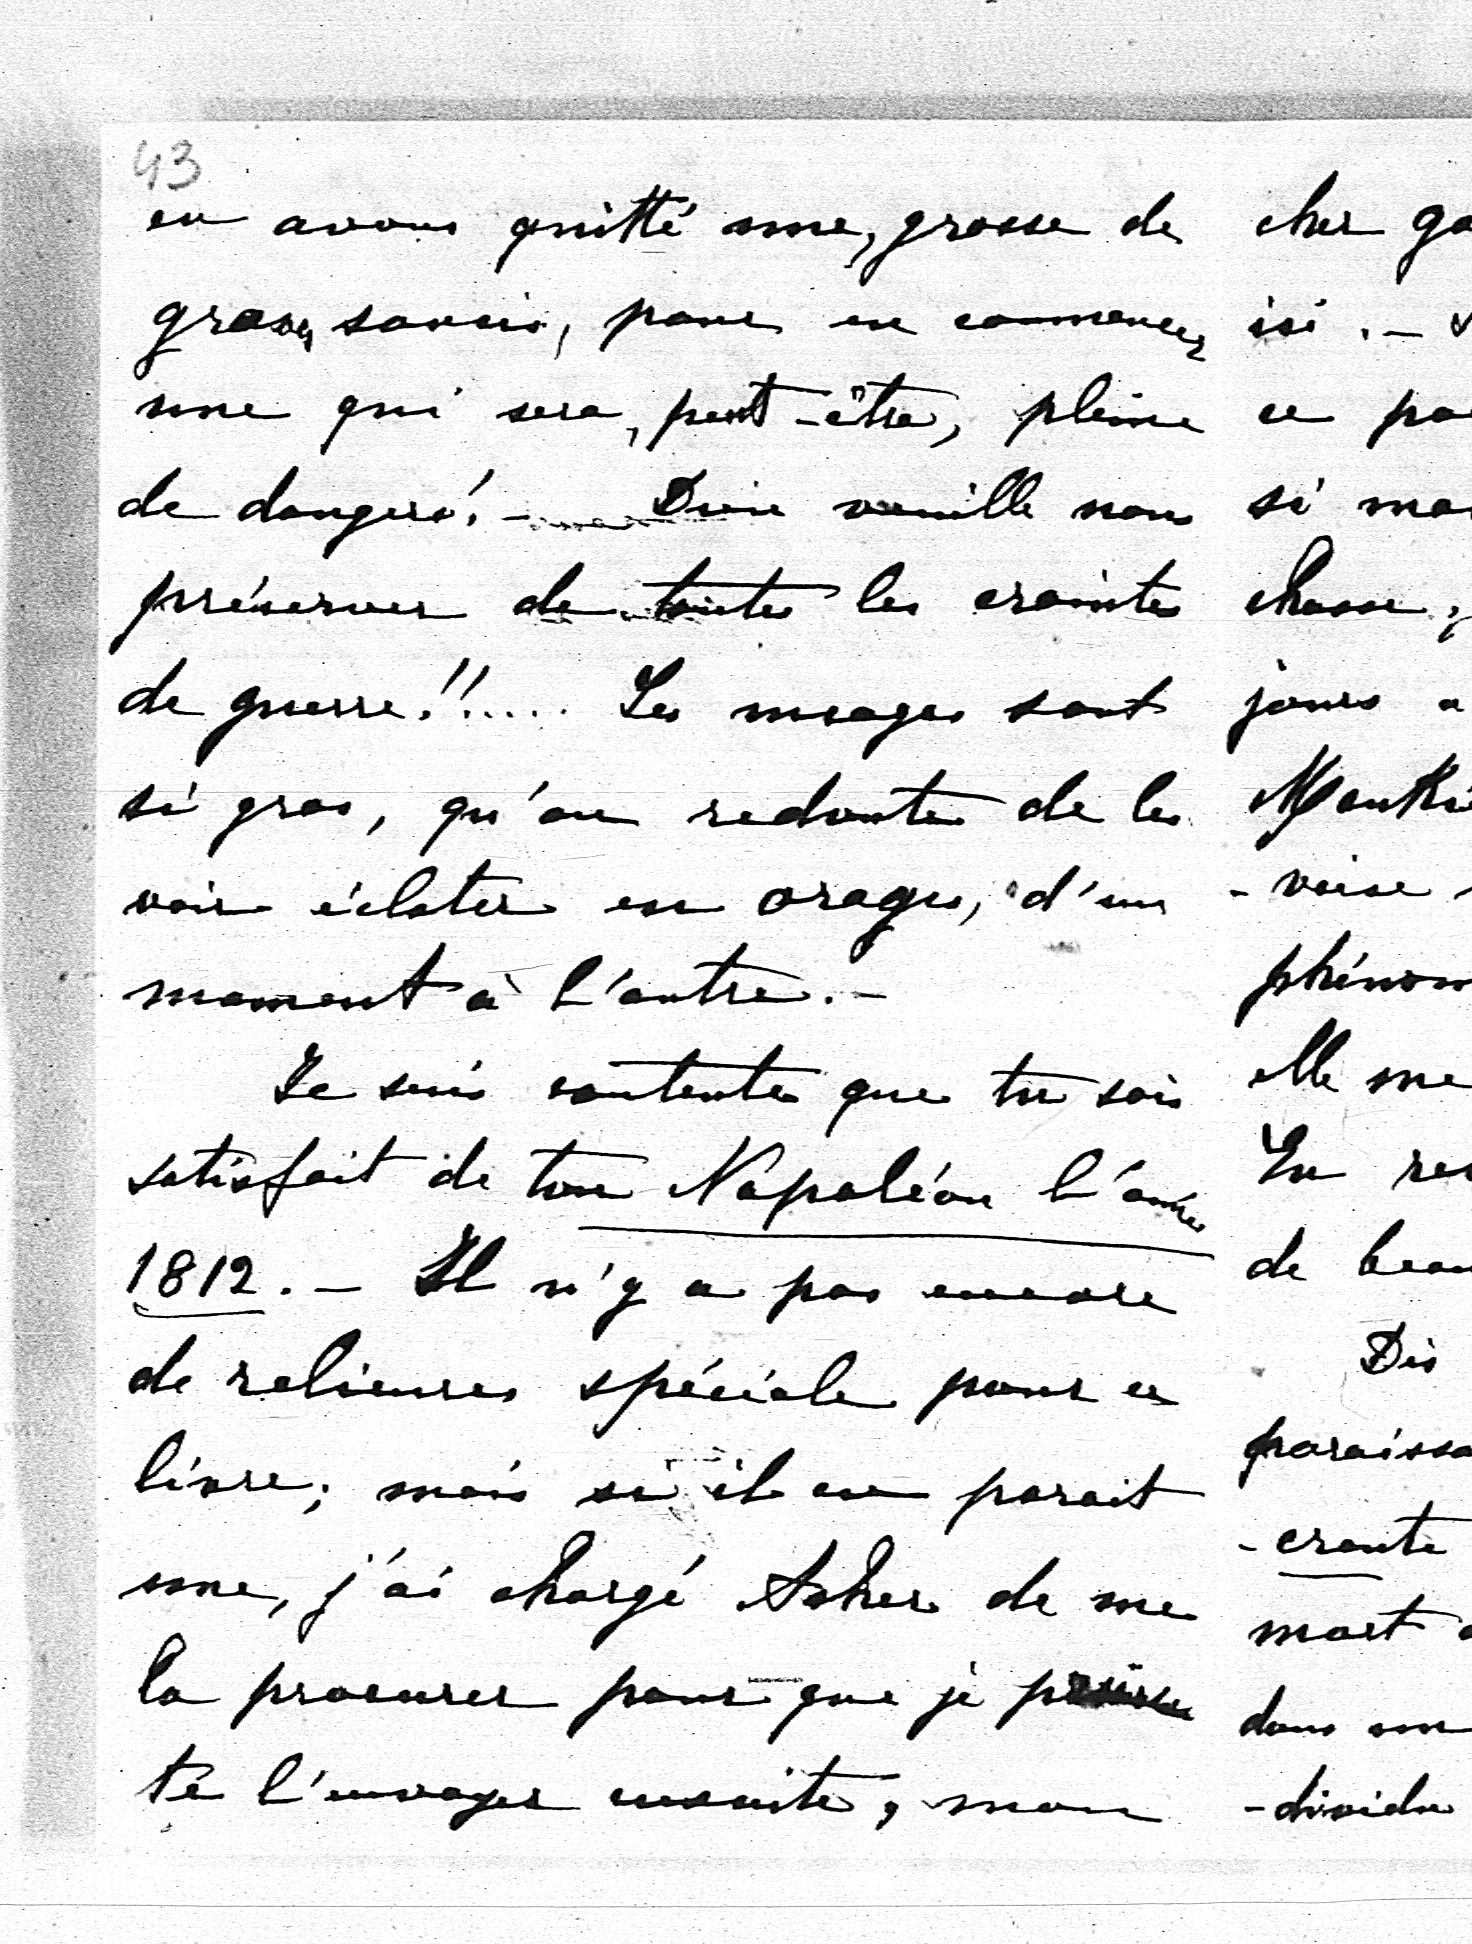 43
en avons quitté une, grosse de
graves soucis, pour en commencer
une qui sera, peut-être, pleine
de dangers! - Dieu veuille nous
préserver de toutes les craintes
de guerre!!..... Les nuages sont
si gros, qu'on redoute de les
voir éclater en orages, d'un
moment à l'autre. -
Je suis contente que tu sois
satisfait de ton Napoléon l'année
1812. - Il n'y a pas encore
de relieures spéciale pour ce
livre; mais si il en parait
une, j'ai chargé Asher de me
la procurer pour que je puisse
te l'envoyer ensuite, mon
cher
ici. -
ce
si
chasse,
jours
-voise
elle me
En
de
Dis
-crante
mort
dans un
-dividu